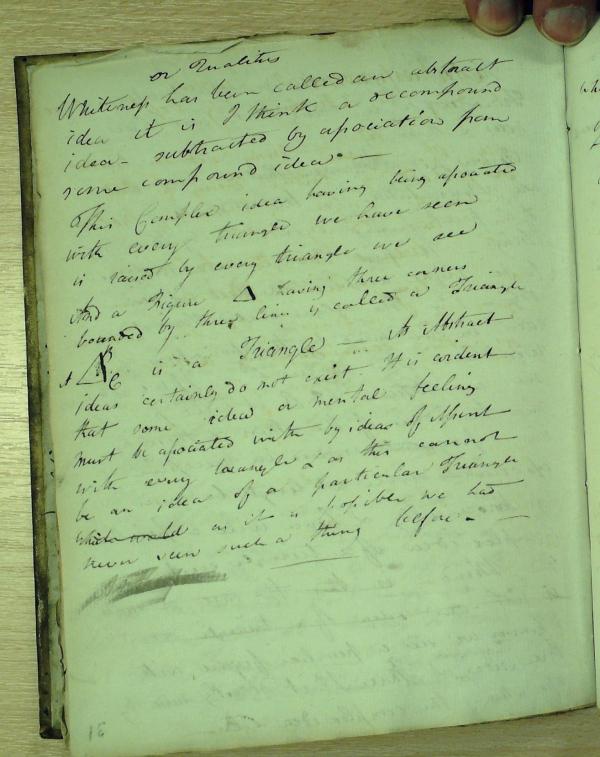 or Qualities
Whiteness has been called an abstract
idea it is I think a decompound
idea - subtracted by association from
some compound idea. —
This Complex idea having being associated
with every triangle we have seen
is raised by every triangle we see
And a Figure Δ having three corners
bounded by three lines is called a Triangle
A Δ B C is a Triangle — As Abstract
ideas certainly do not exist It is evident
that some idea or mental feeling
must be associated with by ideas of Assent
with every triangle & as this cannot
be an idea of a particular Triangle
which would as it is possible we had
never seen such a thing before. —
31